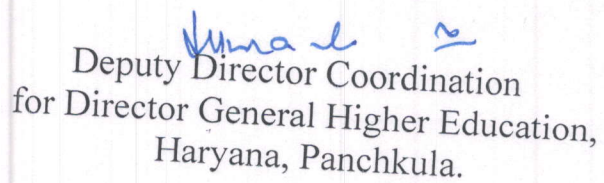 Deputy Director Coordination
for Director General Higher Education,
Haryana, Panchkula.